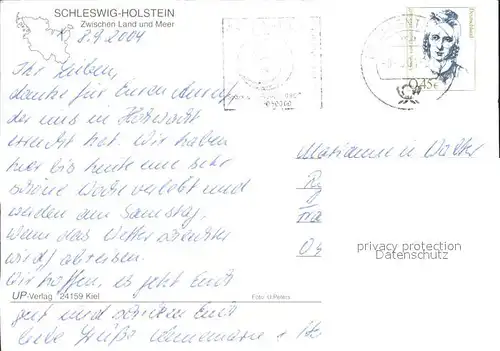 SCHLESWIG-HOLSTEIN
Zwischen Land und Meer
8.9.2004
Ihr Lieben,
danke für Euren Anruf,
der uns in Hohwacht
erreicht hat. Wir haben
hier bis heute eine sehr
schöne Woche verlebt und
werden am Samstag,
wenn das Wetter schlechter
wird, abreisen.
Wir hoffen, es geht Euch
gut und schicken Euch
liebe Grüße Annemarie
Marianne u. Walter
Deutschland
0,45€
privacy protection
Datenschutz
UP-Verlag 24159 Kiel
Foto: U. Peters